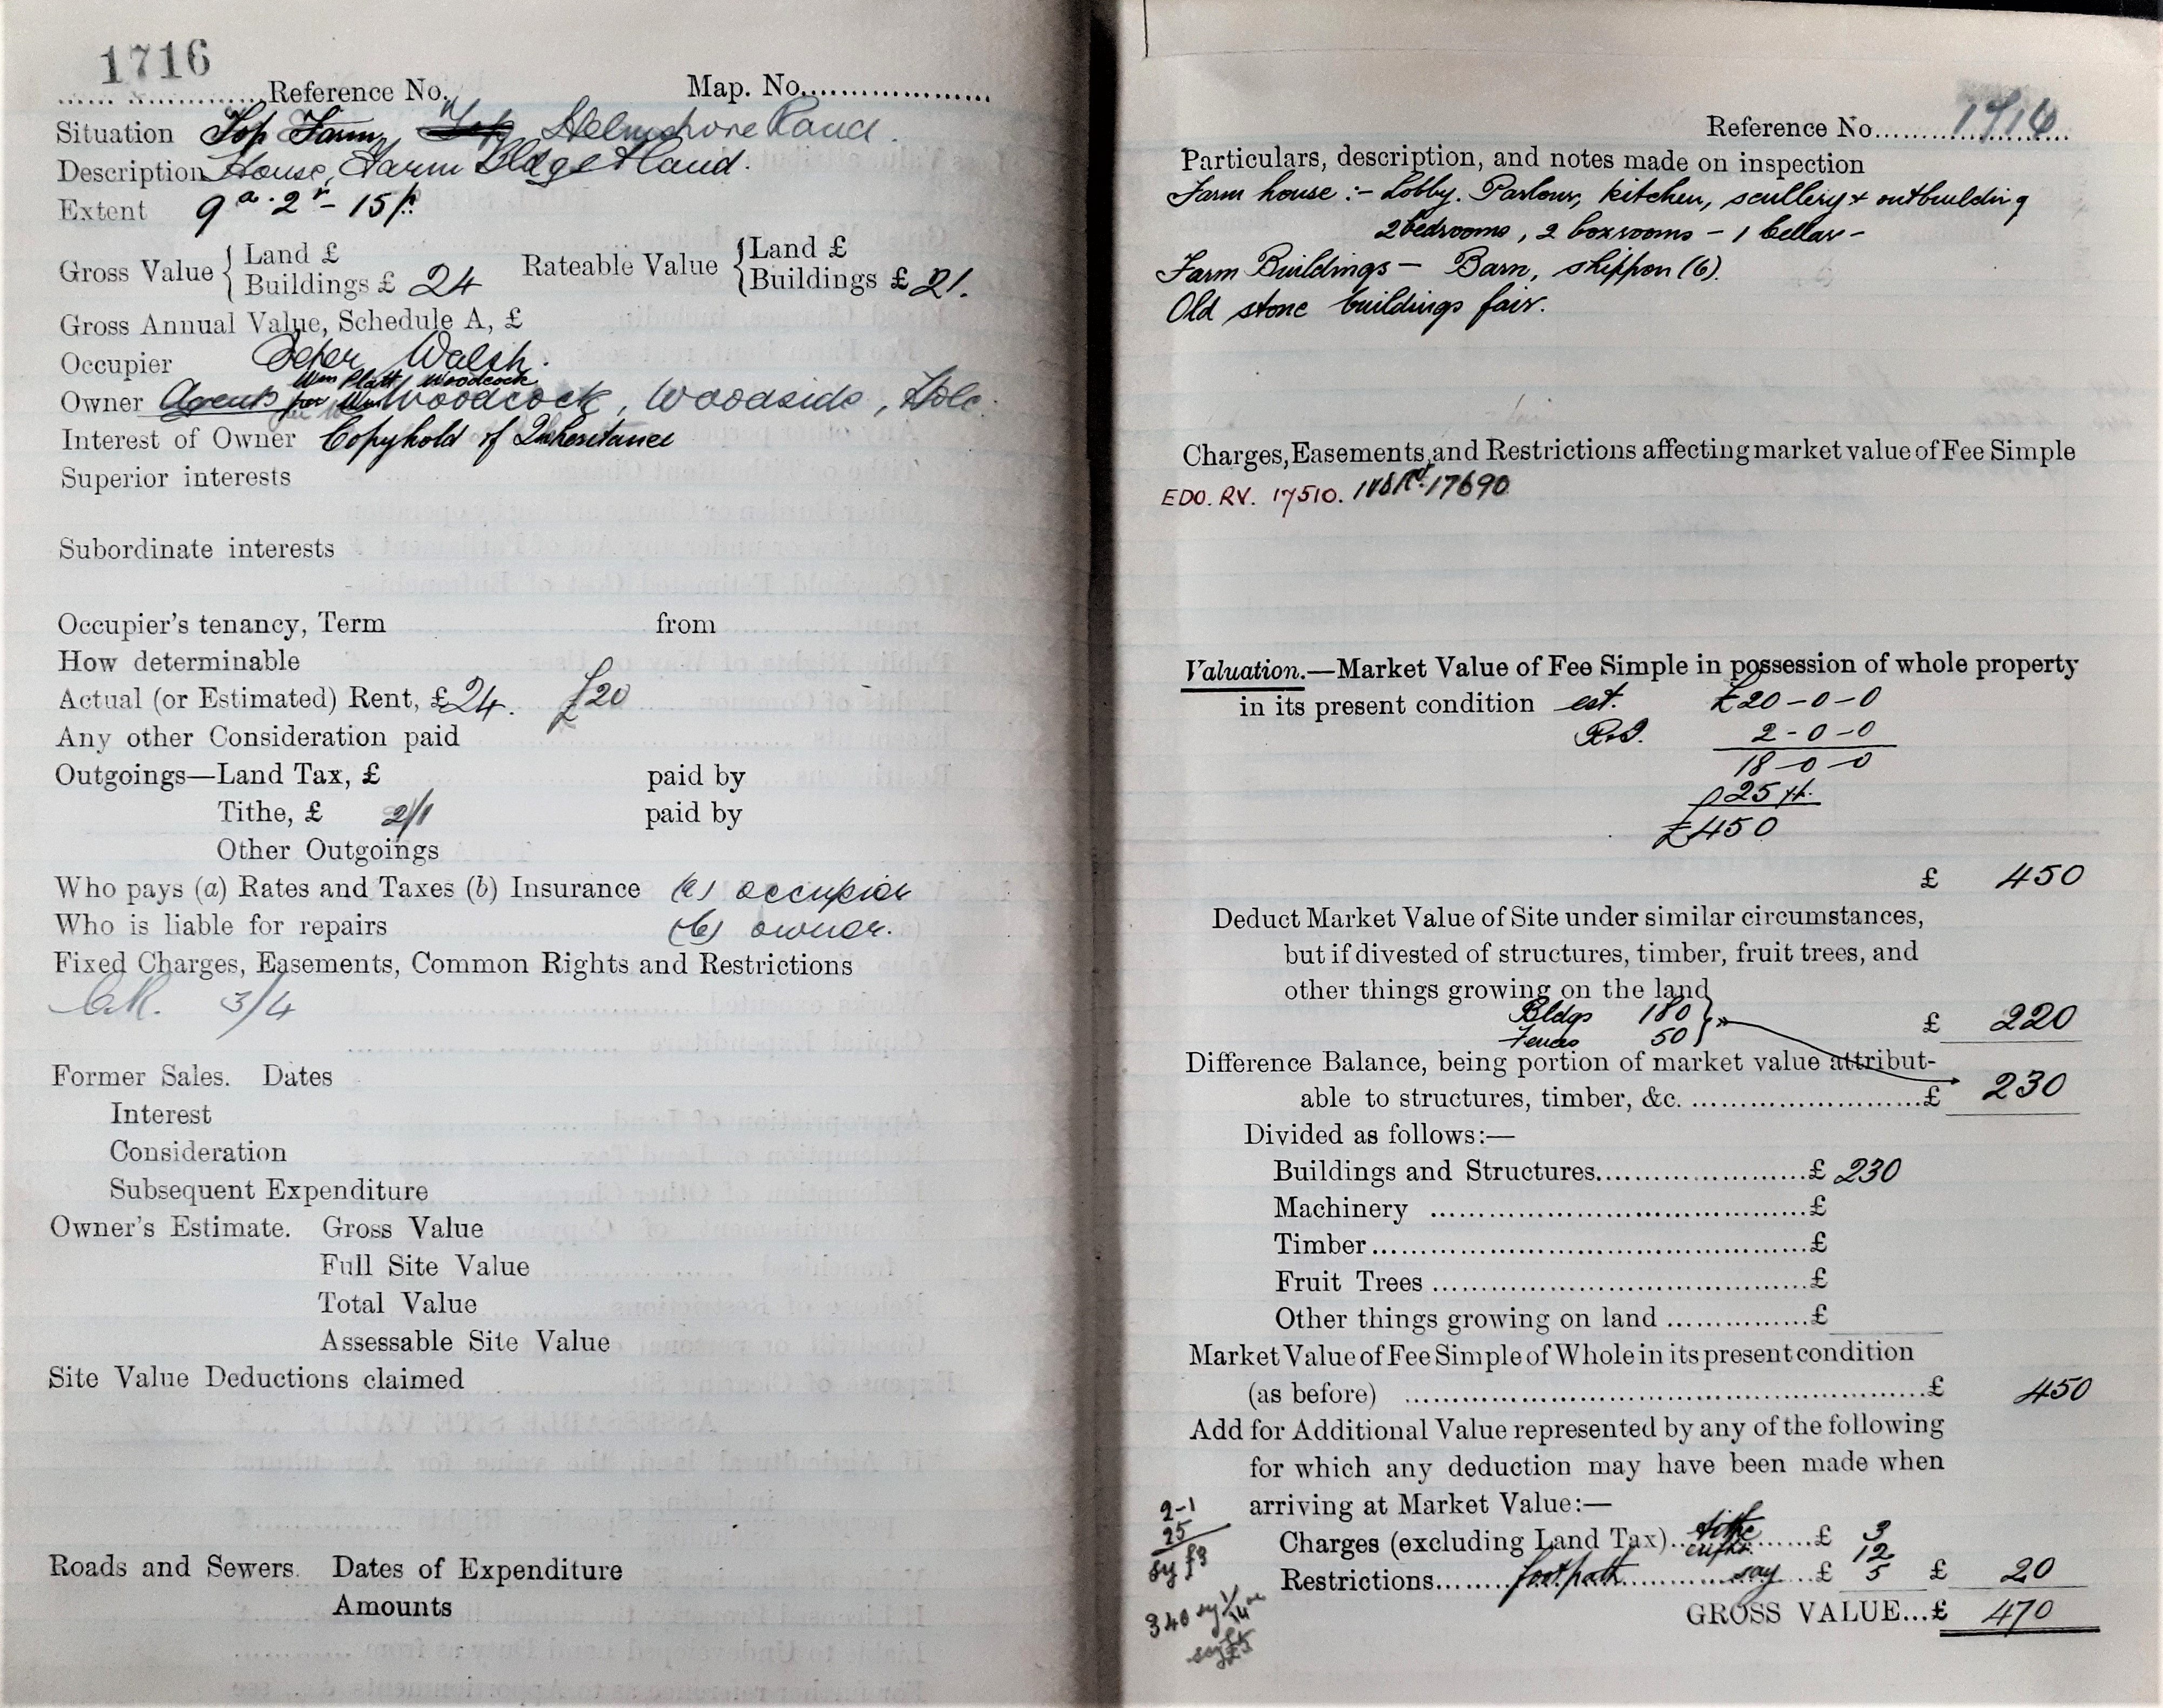 1716
Reference No. Map. No.
Situation Top Farm, Helmshore Road.
Description House, Farm Bldgs & land.
Extent 9a. 2r - 15p.
Gross Value { Land £
Buildings £ 24
Rateable Value { Land £
Buildings £ 21.
Gross Annual Value, Schedule A, £
Occupier Peter Walsh.
Wm Platt Woodcock
Owner Agents for Wm Woodcock, Woodside, Holc.
Interest of Owner Copyhold of Inheritance
Superior interests
Subordinate interests
Occupier's tenancy, Term from
How determinable
Actual (or Estimated) Rent, £24. £20
Any other Consideration paid
Outgoings—Land Tax, £ paid by
Tithe, £ 2/1 paid by
Other Outgoings
Who pays (a) Rates and Taxes (b) Insurance (a) occupier
Who is liable for repairs (b) owner.
Fixed Charges, Easements, Common Rights and Restrictions
C.R. 3/4
Former Sales. Dates
Interest
Consideration
Subsequent Expenditure
Owner's Estimate. Gross Value
Full Site Value
Total Value
Assessable Site Value
Site Value Deductions claimed
Roads and Sewers. Dates of Expenditure
Amounts
Reference No. 1716
Particulars, description, and notes made on inspection
Farm house :- Lobby. Parlour, kitchen, scullery & outbuilding
2 bedrooms, 2 boxrooms - 1 Cellar -
Farm Buildings - Barn, shippon (6).
Old stone buildings fair.
Charges, Easements, and Restrictions affecting market value of Fee Simple
EDO. RV. 17510. 17690
Valuation.—Market Value of Fee Simple in possession of whole property
in its present condition est. £20-0-0
2-0-0
18-0-0
25
£450
£ 450
Deduct Market Value of Site under similar circumstances,
but if divested of structures, timber, fruit trees, and
other things growing on the land
Bldgs 180 }
Fences 50 } £ 220
Difference Balance, being portion of market value attribut-
able to structures, timber, &c. £ 230
Divided as follows:—
Buildings and Structures £ 230
Machinery £
Timber £
Fruit Trees £
Other things growing on land £
Market Value of Fee Simple of Whole in its present condition
(as before) £ 450
Add for Additional Value represented by any of the following
for which any deduction may have been made when
arriving at Market Value:—
2-1
25
sy £3
Charges (excluding Land Tax) tithe £ 3
12
Restrictions footpath say £ 5 £ 20
340
GROSS VALUE...£ 470